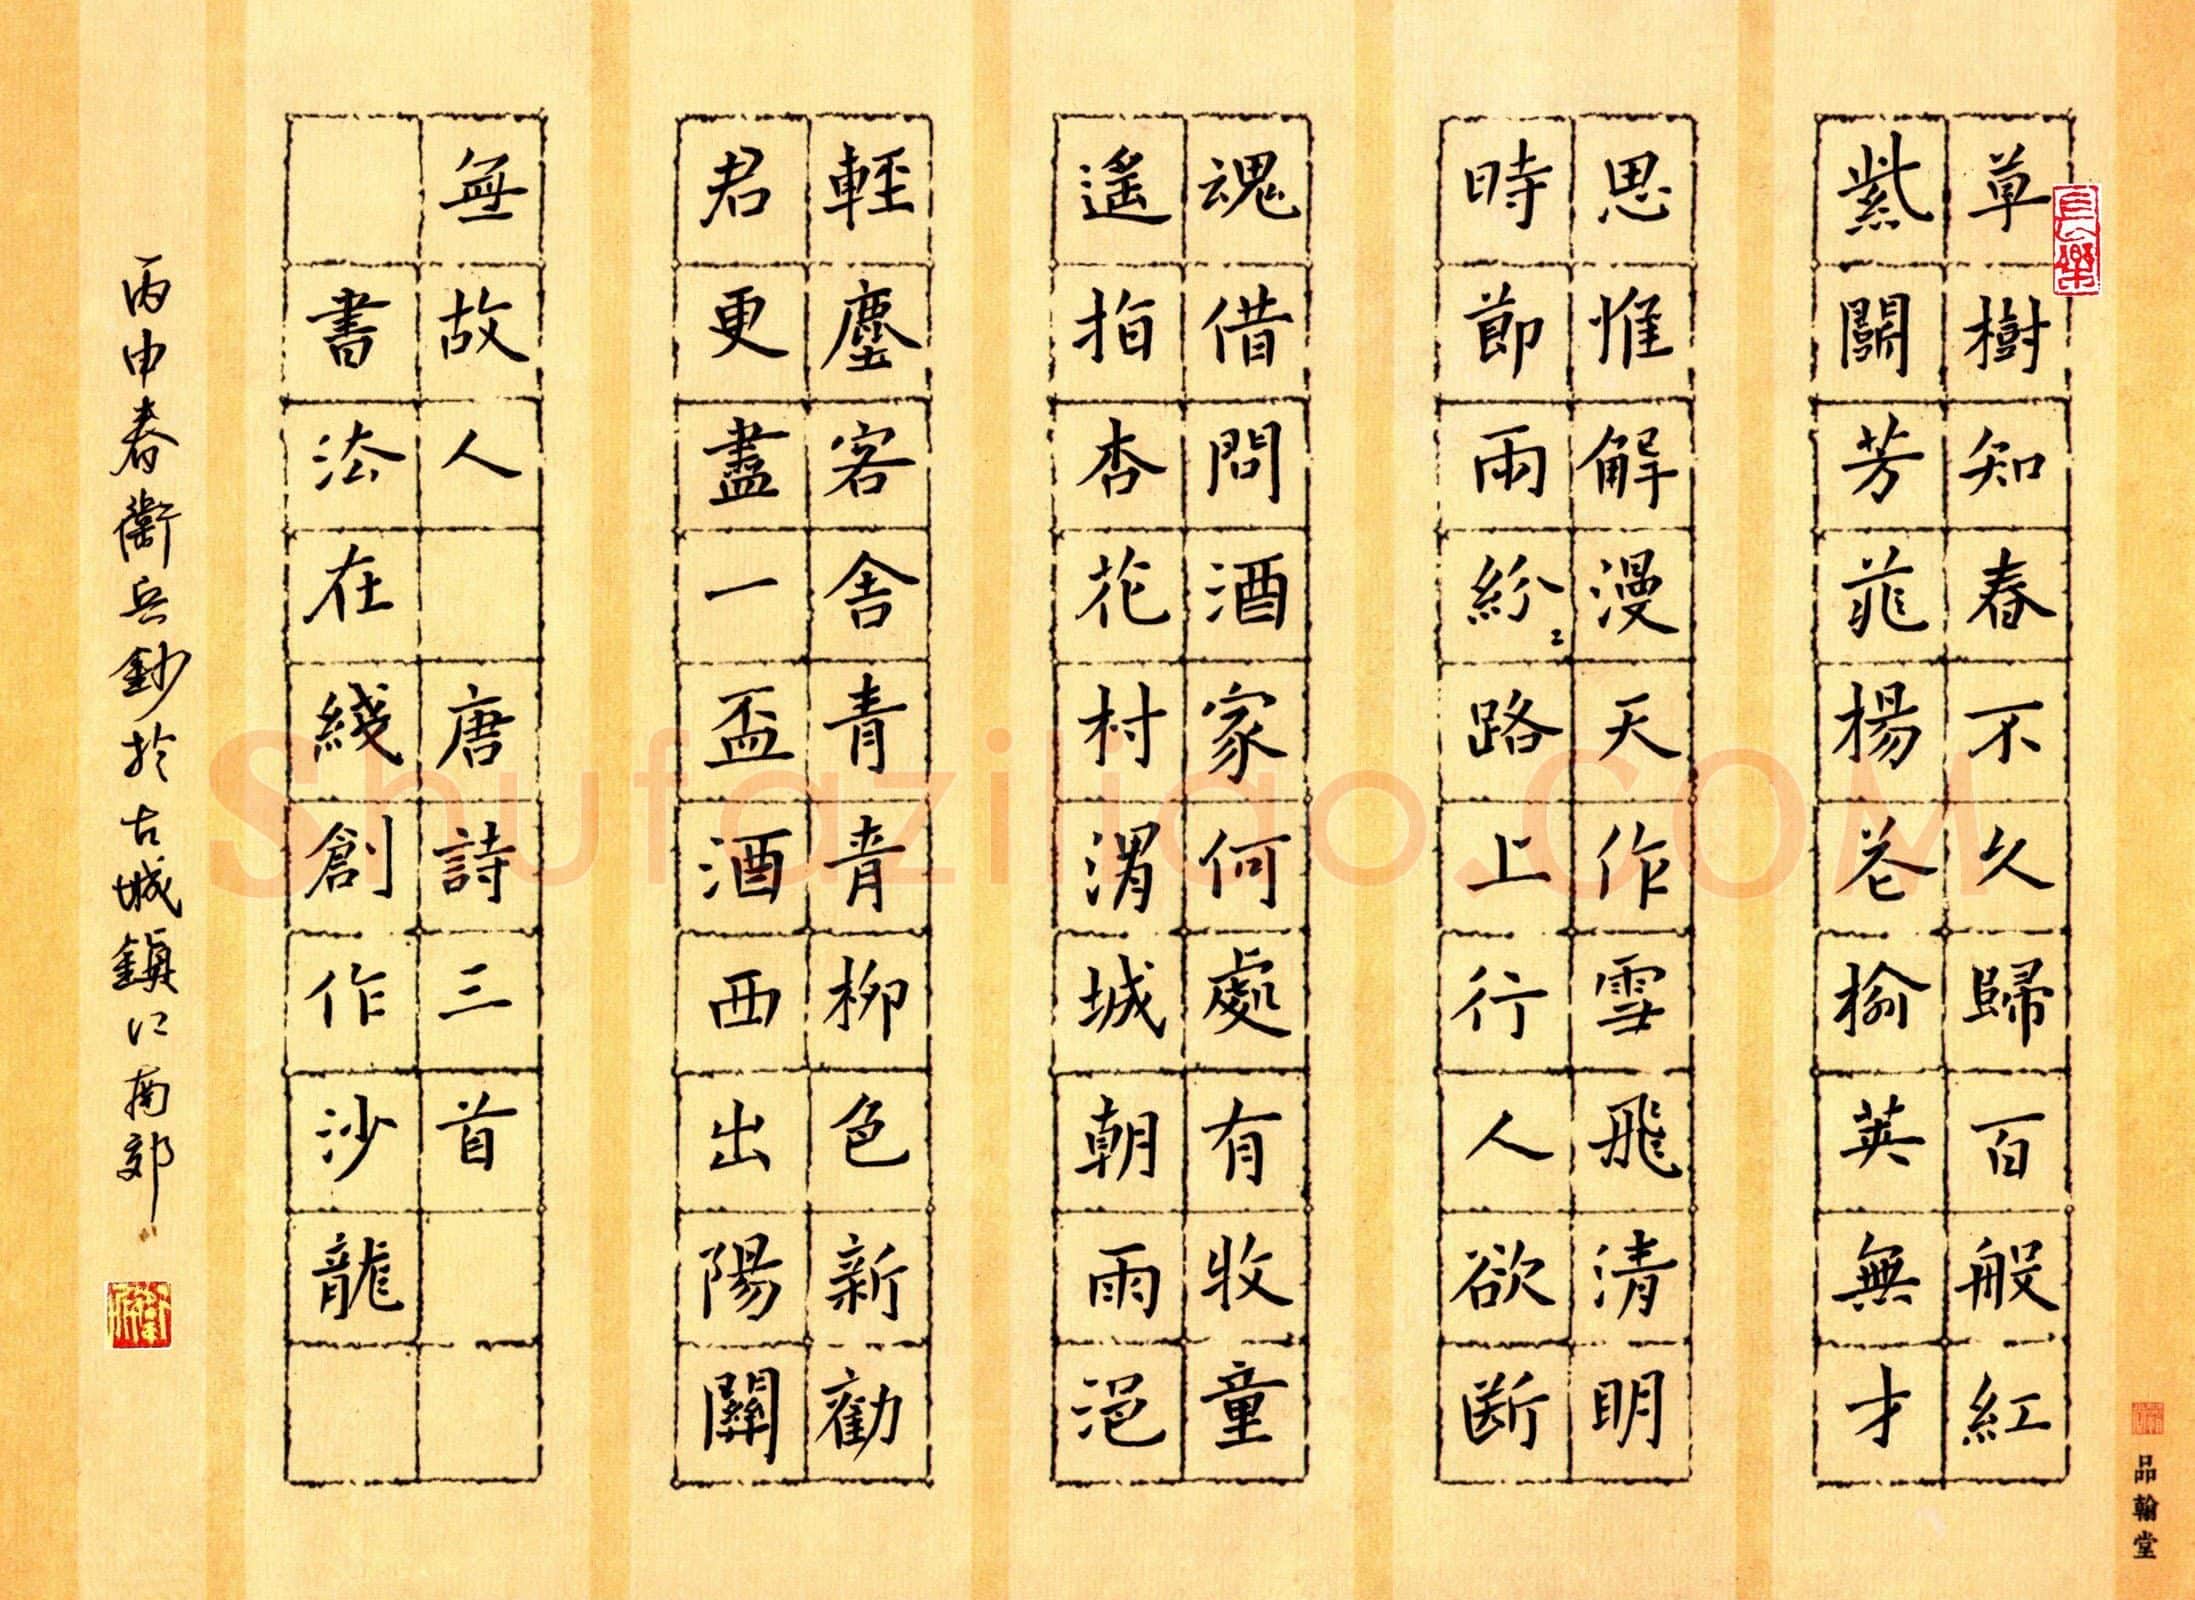 長樂
草樹知春不久歸百般紅
紫鬭芳菲楊花榆莢無才
思惟解漫天作雪飛清明
時節雨紛〻路上行人欲断
魂借問酒家何處有收童
遙指杏花村渭城朝雨浥
輕塵客舍青青柳色新勸
君更盡一盃酒西出陽關
無故人 唐詩三首
書法在綫創作沙龍
丙申春衛兵鈔於古城鎮江南郊
品翰堂
Shufaziliao.COM